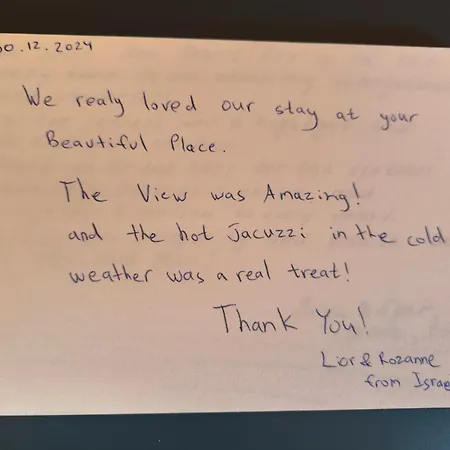 30.12.2024
We realy loved our stay at your
Beautiful Place.
The View was Amazing!
and the hot Jacuzzi in the cold
weather was a real treat!
Thank You!
Lior & Rozanne
from Israel